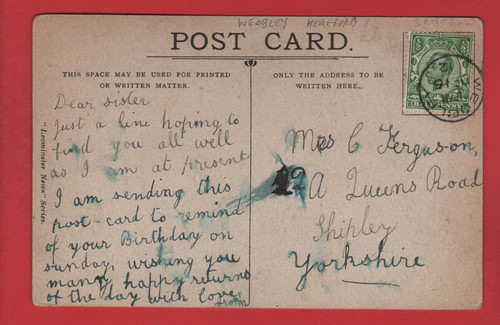 WEOBLEY HEREFORD
POST CARD.
THIS SPACE MAY BE USED FOR PRINTED
OR WRITTEN MATTER.
ONLY THE ADDRESS TO BE
WRITTEN HERE.
"Leominster News" Series.
Dear sister
Just a line hoping to
find you all well
as I am at present
I am sending this
post-card to remind
of your Birthday on
sunday, wishing you
many happy returns
of the day with love
from
Mrs C Ferguson,
22 A Queens Road
Shipley
Yorkshire